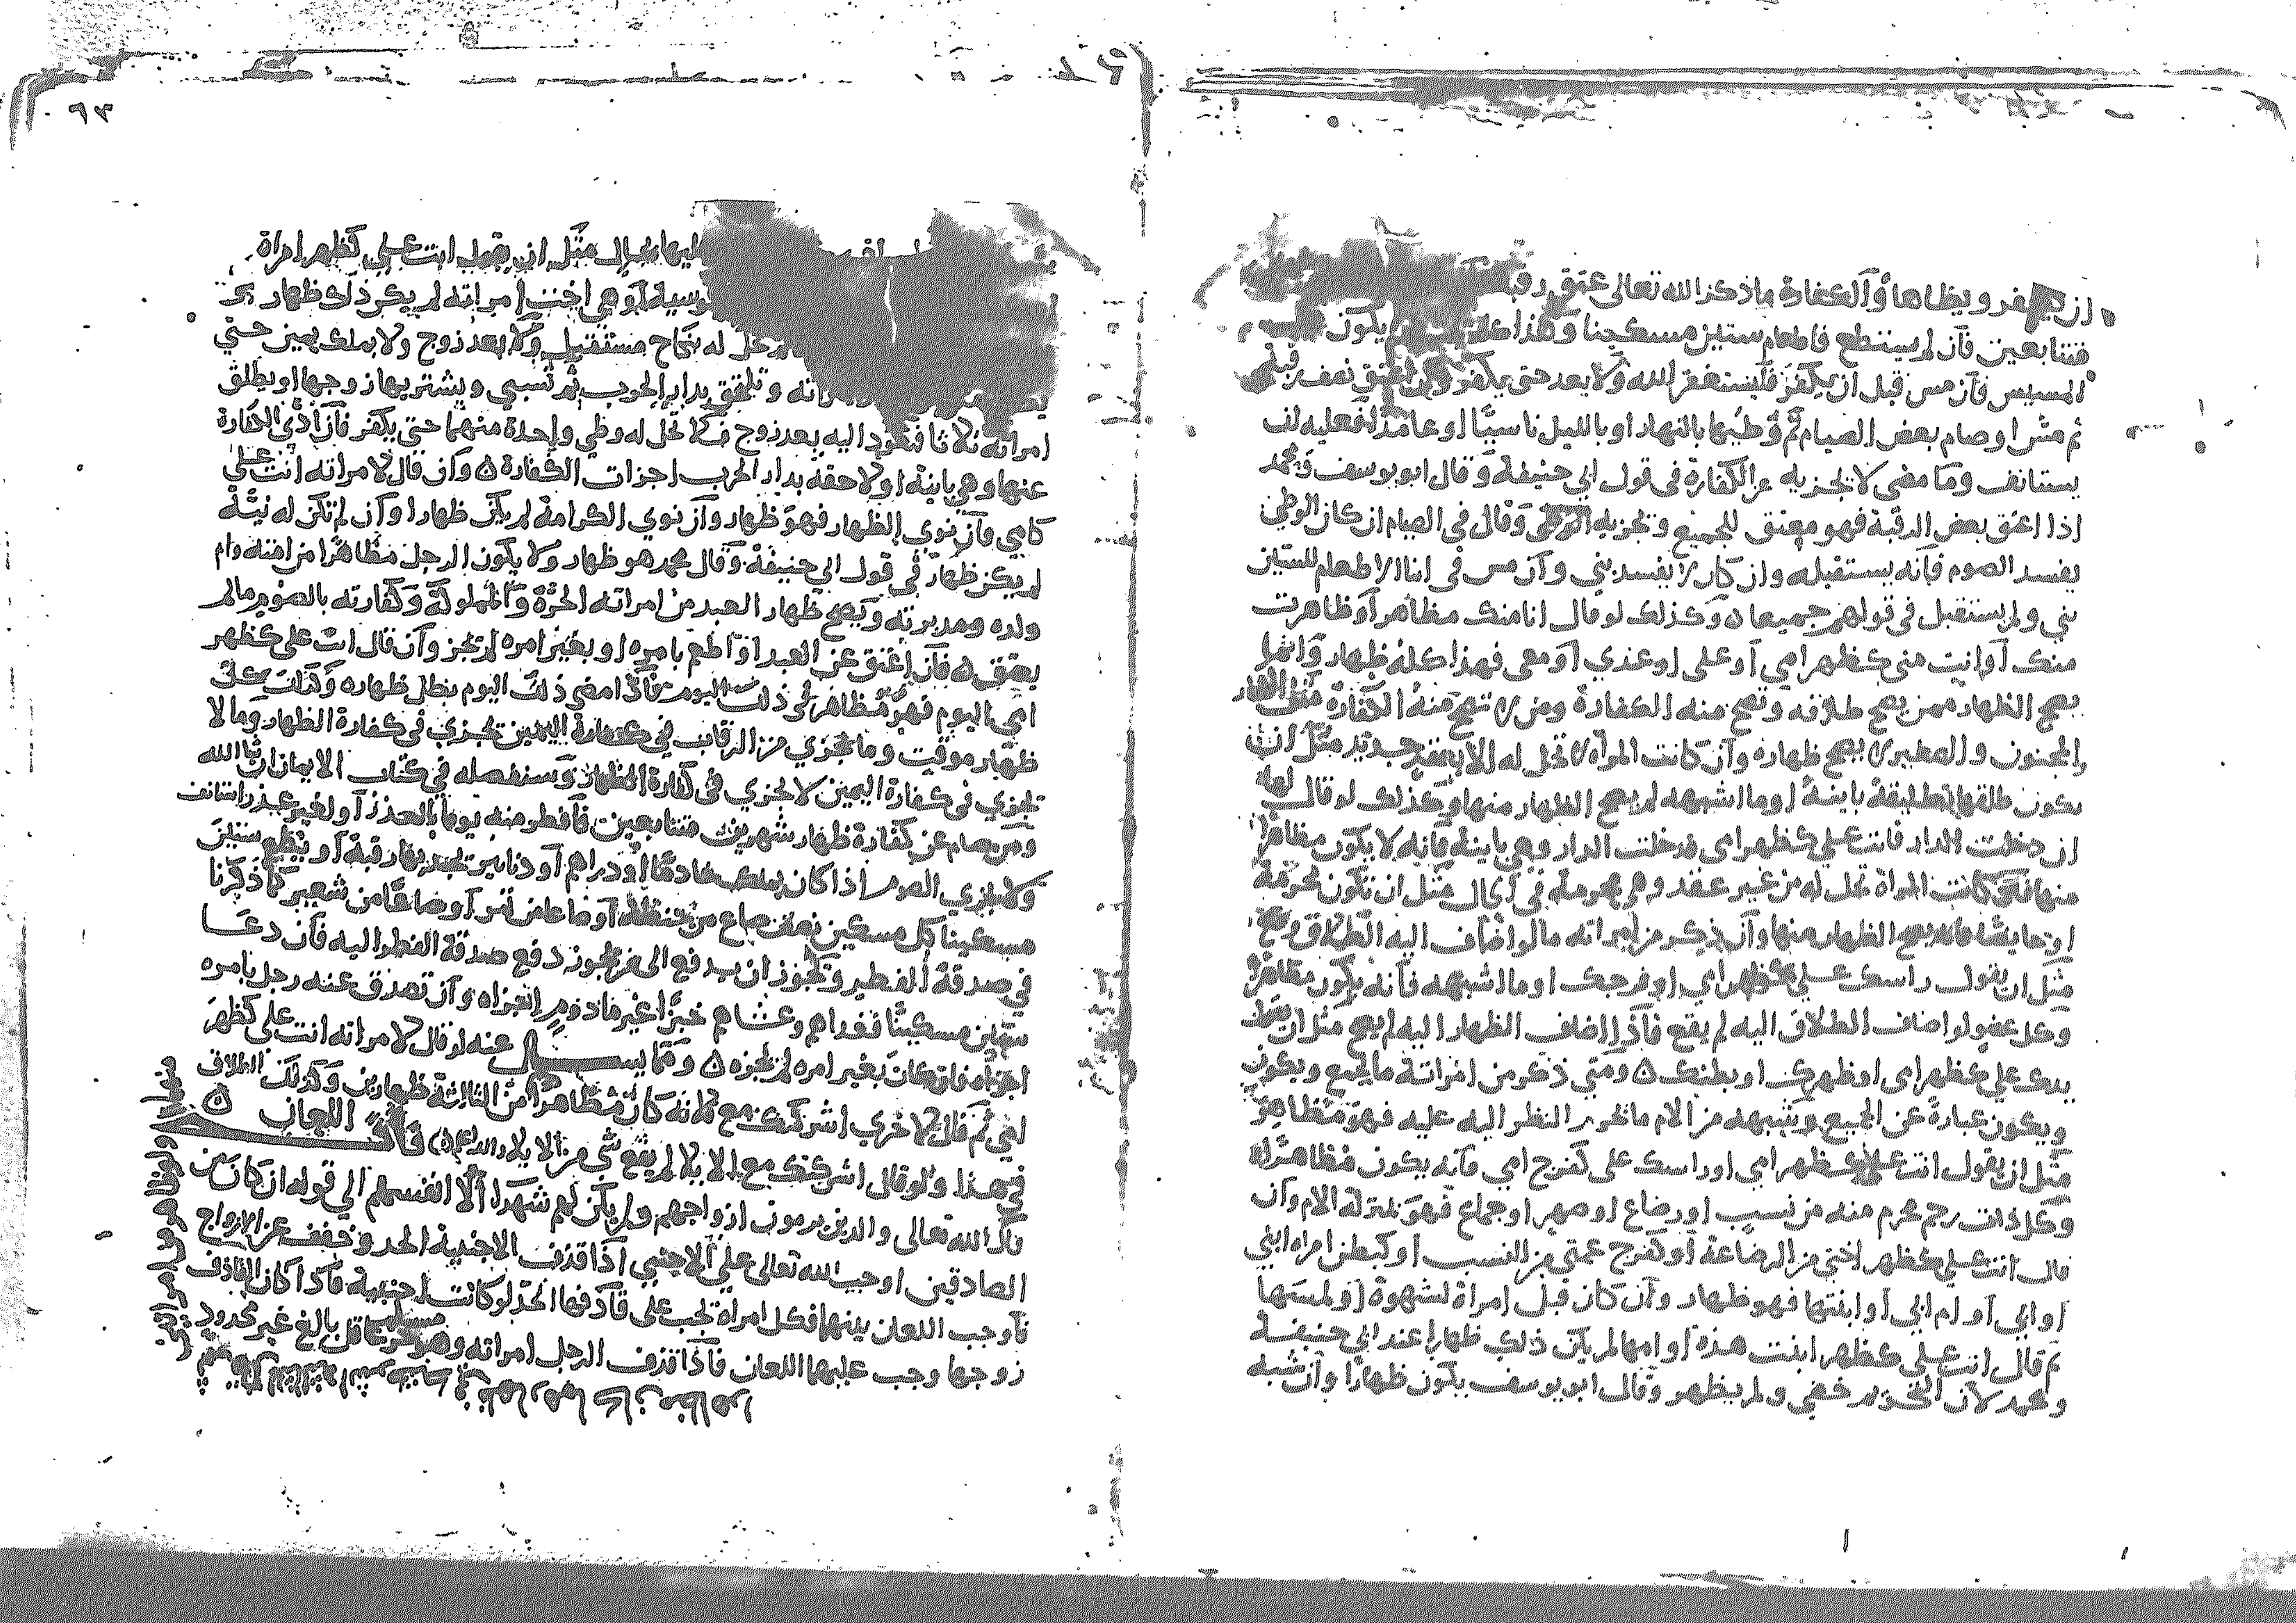 ان يكفر ويظاها والكفارة ما ذكر الله تعالى عتق رقبة
متتابعين فان لم يستطع فاطعام ستين مسكينا وهذا كله يكون
المسيس فان مس قبل ان يكفر فليستغفر الله ولا يعد حتى يكفر وان اعتق نصف رقبة
ثم مس او صام بعض الصيام ثم وطيها بالنهار او بالليل ناسيا او عامدا فعليه ان
يستانف وما مضى لا تجزيه عن الكفارة في قول ابي حنيفة وقال ابو يوسف ومحمد
اذا اعتق بعض الرقبة فهو معتق للجميع وتجزيه وقال في الصيام ان كان الوطي
يفسد الصوم فانه يستقبله وان كان لا يفسد بني وان مس في اثنا الاطعام للستين
بني ولم يستقبل في قولهم جميعا ه وكذلك لو قال انا منك مظاهر او ظاهرت
منك او انت مني كظهر امي او علي او عندي او معي فهذا كله ظهار وانما
يصح الظهار ممن يصح طلاقه وتصح منه الكفارة ومن لا تصح منه الكفارة مثل
والمجنون والصبي لا يصح ظهاره وان كانت المراة لا تحل له الا بعقد جديد مثل ان
يكون طلقها تطليقة باينة او ما اشبهه لم يصح الظهار منها وكذلك لو قال لها
ان دخلت الدار فانت علي كظهر امي فدخلت الدار وهي باينة فانه لا يكون مظاهرا
منها كانت المراة تحل له من غير عقد وهي محرمة في الحال مثل ان تكون محرمة
او حايضا فانه يصح الظهار منها وان ذكر من امراته ما لو اضاف اليه الطلاق وقع
مثل ان يقول راسك علي كظهر امي او فرجك او ما اشبهه فانه يكون مظاهرا
وكل عضو لو اضاف الطلاق اليه لم يقع فاذا اضاف الظهار اليه لم يصح مثل ان يقول
يدك علي كظهر امي او ظهرك او بطنك ه ومتى ذكر من امراته ما لجميع ويكون
ويكون عبارة عن الجميع وشبهه من الام ما تحرم النظر اليه عليه فهو مظاهر
مثل ان يقول انت علي كظهر امي او راسك علي كفرج امي فانه يكون مظاهرا
وكل ذات رحم محرم منه من نسب او رضاع او صهر او جماع فهو بمنزلة الام وان
قال انت علي كظهر اختي من الرضاعة او كفرج عمتي من النسب او كبطن امراة ابني
او ابي او ام ابي او ابنتها فهو ظهار وان كان قبل امراة لشهوة او لمسها
ثم قال انت علي كظهر ابنت هذه او امها لم يكن ذلك ظهارا عند ابي حنيفة
ومحمد لان التحريم خفي ولم يظهر وقال ابو يوسف يكون ظهارا وان شبه
٦٣
عليها بحال مثل ان يقول انت علي كظهر امراة
او هي اخت امراته لم يكن ذلك ظهار
تحل له بنكاح مستقبل ولا بعد زوج ولا بملك يمين حتى
وتلحق بدار الحرب ثم تسبى ويشتريها زوجها او يطلق
امراته ثلاثا فتعود اليه بعد زوج فلا تحل له وطي واحدة منهما حتى يكفر فان ادى الكفارة
عنها وهي باينة او لاحقة بدار الحرب اجزات الكفارة ه وان قال لامراته انت علي
كامي فان نوى الظهار فهو ظهار وان نوى الكرامة لم يكن ظهارا وان لم تكن له نية
لم يكن ظهارا في قول ابي حنيفة وقال محمد هو ظهار ولا يكون الرجل مظاهرا من امته وام
ولده ومدبرته ويصح ظهار العبد من امراته الحرة والمملوكة وكفارته بالصوم ما لم
يعتق ه فان اعتق عن العبد او اطعم بامره او بغير امره لم تجز وان قال انت علي كظهر
امي اليوم فهو مظاهر في ذلك اليوم فاذا مضى ذلك اليوم بطل ظهاره وكذلك كل
ظهار موقت وما تجزي من الرقاب في كفارة اليمين تجزي في كفارة الظهار وما لا
تجزي في كفارة اليمين لا تجزي في كفارة الظهار وسنفصله في كتاب الايمان ان شا الله
ومن صام عن كفارة ظهار شهرين متتابعين فافطر منه يوما لعذر او لغير عذر استانف
ولا يجزي الصوم اذا كان يملك خادما او دراهم او دنانير تجد بها رقبة او يطعم ستين
مسكينا لكل مسكين نصف صاع من حنطة او صاعا من تمر او صاعا من شعير كما ذكرنا
في صدقة الفطر وتجوز ان يدفع الى من يجوز دفع صدقة الفطر اليه فان دعا
ستين مسكينا فغداهم وعشاهم خبزا غير مادوم اجزاه وان تصدق عنه رجل بامره
اجزاه فان كان بغير امره لم تجزه ه ومما يسال عنه لو قال لامراته انت علي كظهر
امي ثم قال لاخرى اشركتك مع فلانة كان مظاهرا من الثالثة ظهارين وكذلك الطلاق
في هذا ولو قال اشركتك مع الايلا لم يقع شي من الايلا والله اعلم باب اللعان ه
قال الله تعالى والذين يرمون ازواجهم ولم يكن لهم شهدا الا انفسهم الى قوله ان كان من
الصادقين اوجب الله تعالى على الاجنبي اذا قذف الاجنبية الحد وخفف عن الازواج
فاوجب اللعان بينهما فكل امراة تجب على قاذفها الحد لو كانت اجنبية فاذا كان القاذف
زوجها وجب عليها اللعان فاذا قذف الرجل امراته وهو حر مسلم عاقل بالغ غير محدود